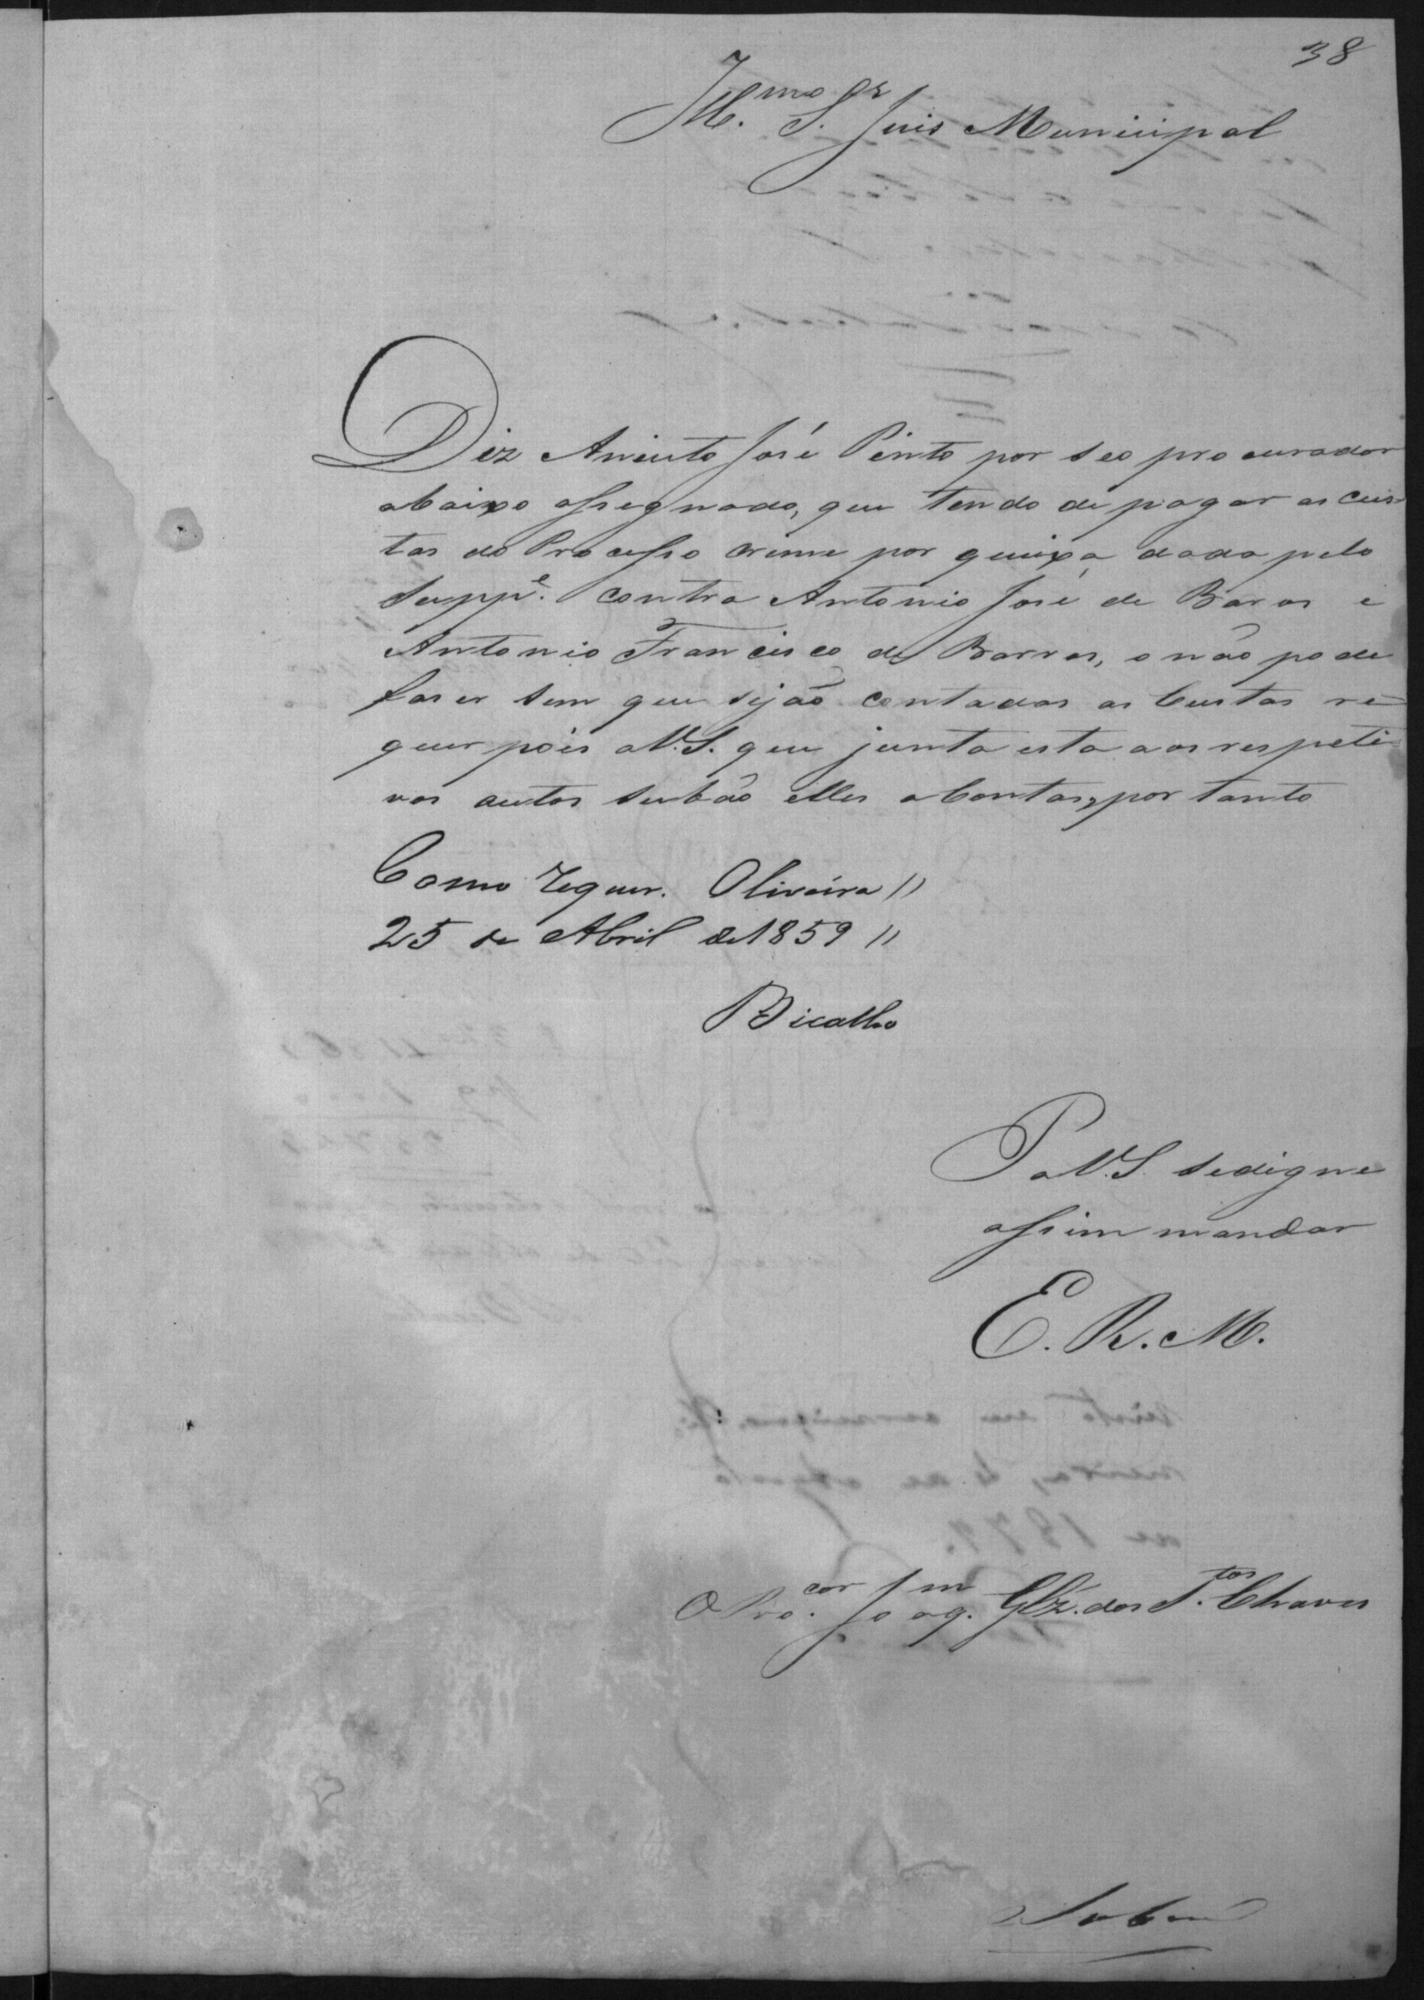 38
Ill.mo S.or Juis Municipal
Diz Aniceto José Pinto por seo procurador
abaixo assegnado, que tendo de pagar as cus-
tas do Processo crime por queixa dada pelo
Supp.e contra Antonio José de Baros e
Antonio Francisco de Barros, o não pode
faser sem que sejão contadas as Custas re-
quer pois a V.S. que junta esta aos respeti-
vos autos subão elles a Contas, por tanto
Como requer. Oliveira //
25 de Abril de 1859 //
Bicalho
P a V.S. se digne
assim mandar
E. R. M.
O Pro.cor Joaq.m Glz. dos S.tos Chaves